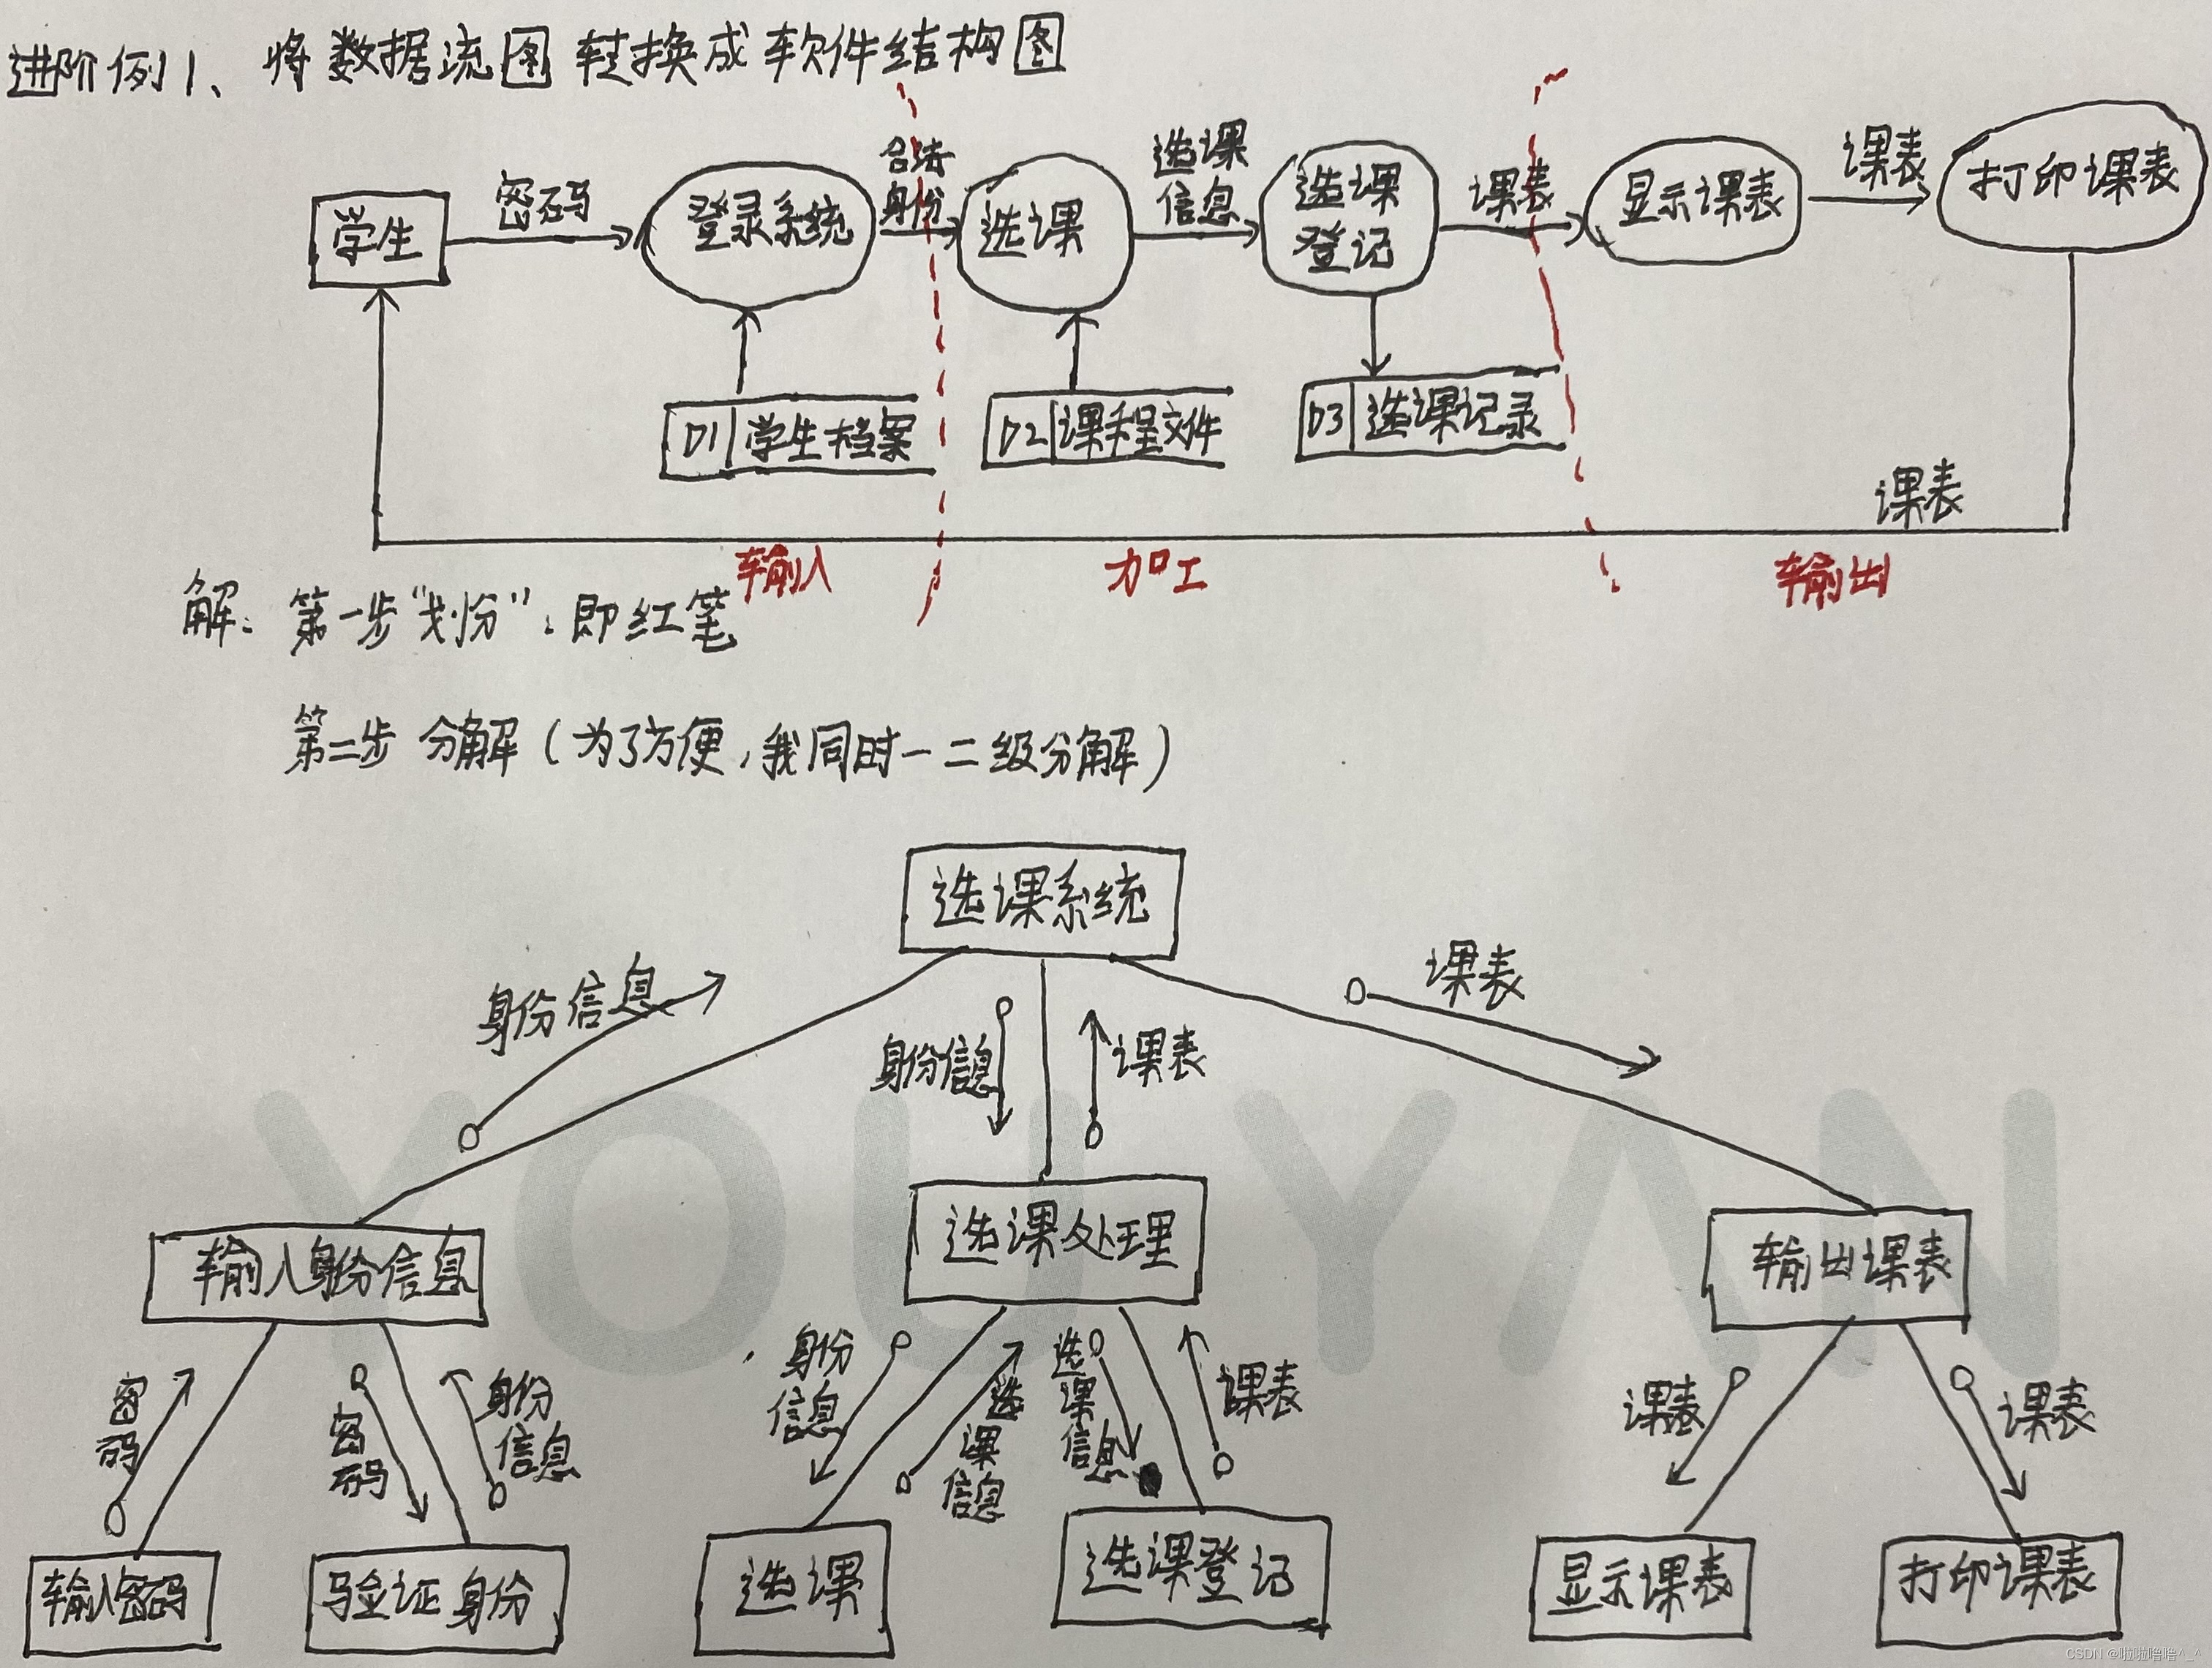 进阶例1、将数据流图转换成软件结构图
学生
密码
登录系统
合法
身份
选课
选课
信息
选课
登记
课表
显示课表
课表
打印课表
D1 学生档案
D2 课程文件
D3 选课记录
课表
输入
加工
输出
解:第一步“划份”:即红笔
第二步 分解(为了方便,我同时一二级分解)
选课系统
身份信息
身份信息
课表
课表
YOUYAN
输入身份信息
选课处理
输出课表
密码
密码
身份
信息
身份
信息
选课信息
选课信息
课表
课表
课表
输入密码
验证身份
选课
选课登记
显示课表
打印课表
CSDN @啦啦噜噜^_^